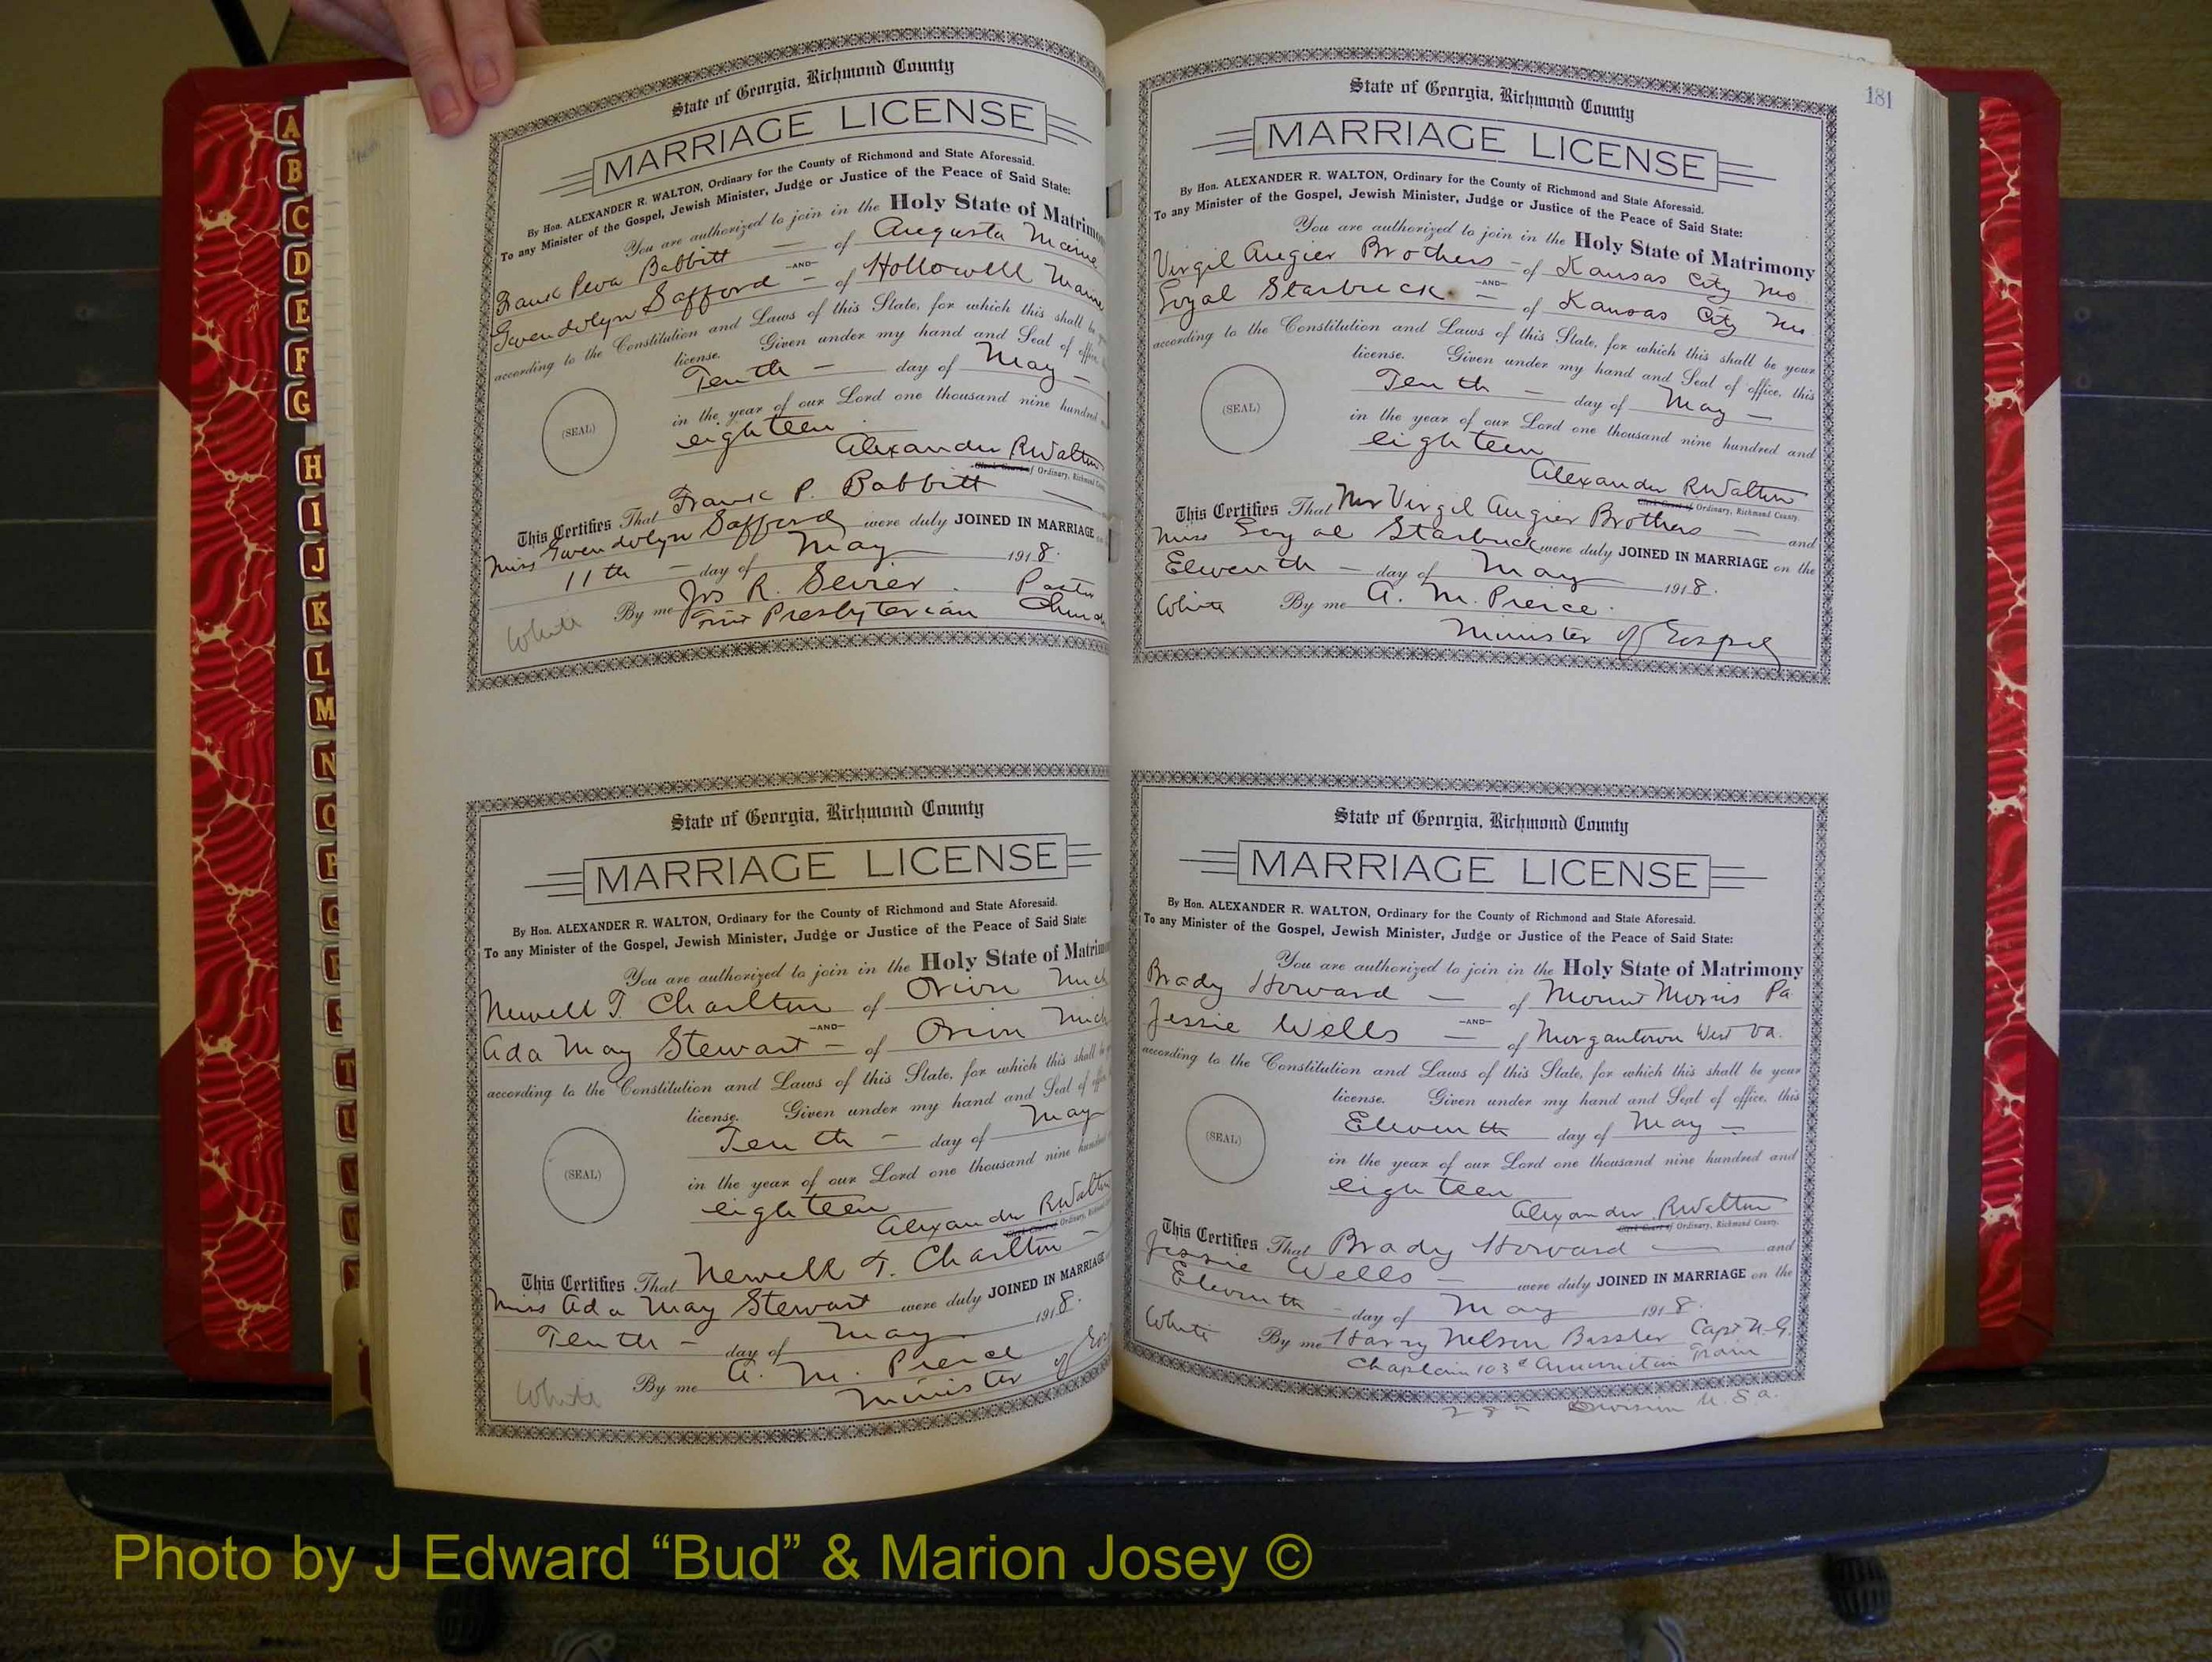 State of Georgia, Richmond County
MARRIAGE LICENSE
By Hon. ALEXANDER R. WALTON, Ordinary for the County of Richmond and State Aforesaid.
To any Minister of the Gospel, Jewish Minister, Judge or Justice of the Peace of Said State:
You are authorized to join in the Holy State of Matrimo
Frank Babbitt — of Augusta Maine
—AND—
Gwendolyn Safford — of Hollowell Maine
according to the Constitution and Laws of this State, for which this shall be
license. Given under my hand and Seal of office,
Tenth — day of May —
(SEAL)
in the year of our Lord one thousand nine hundred
eighteen
Alexander R Walton
Clerk Court of Ordinary, Richmond County
This Certifies That Frank P. Babbitt
Miss Gwendolyn Safford were duly JOINED IN MARRIAGE on
11th — day of May 1918.
By me Jos R. Sevier. Pastor
White First Presbyterian Church
State of Georgia, Richmond County
MARRIAGE LICENSE
By Hon. ALEXANDER R. WALTON, Ordinary for the County of Richmond and State Aforesaid.
To any Minister of the Gospel, Jewish Minister, Judge or Justice of the Peace of Said State:
You are authorized to join in the Holy State of Matrim
Newell T. Charlton of Orion Mich
—AND—
Ada May Stewart — of Orion Mich
according to the Constitution and Laws of this State, for which this shall be
license. Given under my hand and Seal of office,
Tenth — day of May
(SEAL)
in the year of our Lord one thousand nine hundred
eighteen
Alexander R Walton
Clerk Court of Ordinary, Richmond
This Certifies That Newell T. Charlton —
Miss Ada May Stewart were duly JOINED IN MARRIAGE
Tenth — day of May 1918.
By me A. M. Pierce
White Minister of Gos
181
State of Georgia, Richmond County
MARRIAGE LICENSE
By Hon. ALEXANDER R. WALTON, Ordinary for the County of Richmond and State Aforesaid.
To any Minister of the Gospel, Jewish Minister, Judge or Justice of the Peace of Said State:
You are authorized to join in the Holy State of Matrimony
Virgil Augier Brothers — of Kansas City Mo
—AND—
Loyal Starbuck — of Kansas City Mo.
according to the Constitution and Laws of this State, for which this shall be your
license. Given under my hand and Seal of office, this
Tenth — day of May —
(SEAL)
in the year of our Lord one thousand nine hundred and
eighteen
Alexander R Walton
Clerk Court of Ordinary, Richmond County.
This Certifies That Mr Virgil Augier Brothers — and
Miss Loyal Starbuck were duly JOINED IN MARRIAGE on the
Eleventh — day of May 1918.
White By me A. M. Pierce.
Minister of Gospel
State of Georgia, Richmond County
MARRIAGE LICENSE
By Hon. ALEXANDER R. WALTON, Ordinary for the County of Richmond and State Aforesaid.
To any Minister of the Gospel, Jewish Minister, Judge or Justice of the Peace of Said State:
You are authorized to join in the Holy State of Matrimony
Brady Howard — of Mount Morris Pa
—AND—
Jessie Wells — of Morgantown West Va.
according to the Constitution and Laws of this State, for which this shall be your
license. Given under my hand and Seal of office, this
Eleventh day of May —
(SEAL)
in the year of our Lord one thousand nine hundred and
eighteen
Alexander R Walton
Clerk Court of Ordinary, Richmond County.
This Certifies That Brady Howard — and
Jessie Wells — were duly JOINED IN MARRIAGE on the
Eleventh — day of May 1918.
White By me Harry Nelson Bassler Capt N.G.
Chaplain 103d Ammunition Train
28th Division U.S.A.
A
B
C
D
E
F
G
H
I
J
K
L
M
N
O
P
Q
R
S
T
U
Photo by J Edward “Bud” & Marion Josey ©